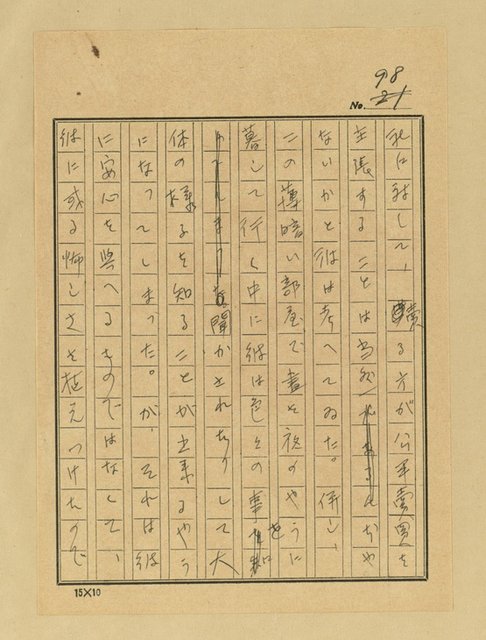 98
No. 21
死に対して、購する方が公平売買を
主張することは当然ぢや
ないかと彼は考へてゐた。併し、
この薄暗い部屋で昼を夜のやうに
暮して行く中に彼は色々の事を
聞かされたりして大
体の様子を知ることが出来るやう
になつてしまつた。が、それは彼
に安心を与へるものではなくて、
彼に或る怖しさを植えつけたので
15×10